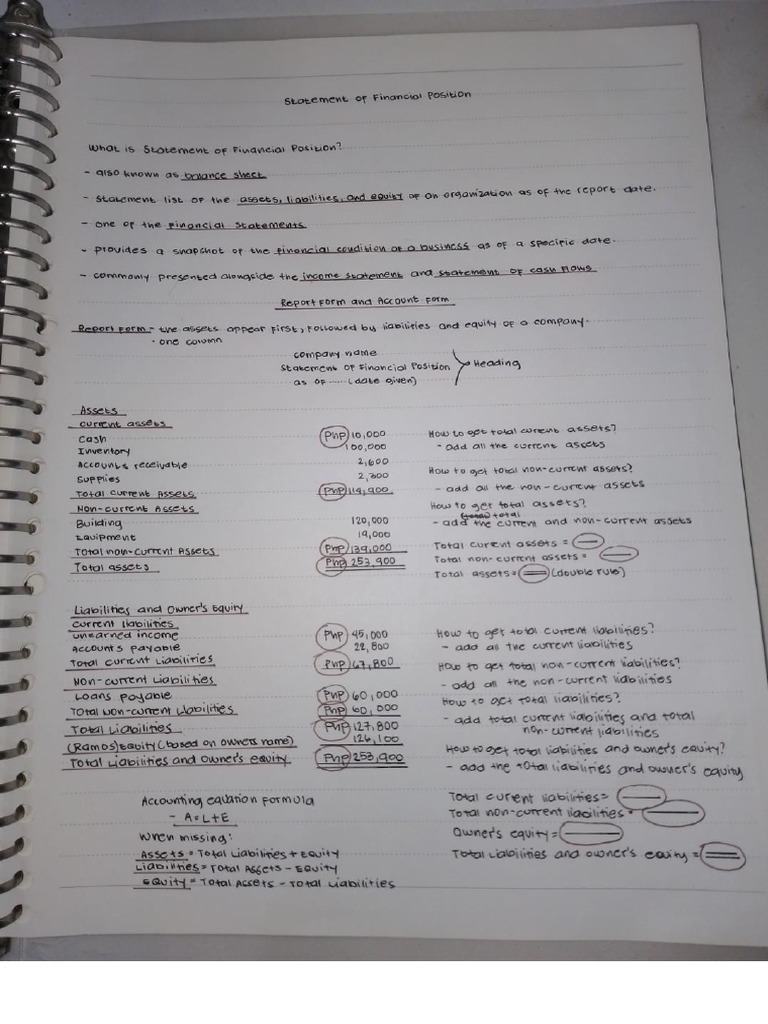 Statement of Financial Position
What is Statement of Financial Position?
- also known as balance sheet
- statement list of the assets, liabilities, and equity of an organization as of the report date.
- one of the financial statements
- provides a snapshot of the financial condition of a business as of a specific date.
- commonly presented alongside the income statement and statement of cash flows
Report Form and Account Form
Report Form - the assets appear first, followed by liabilities and equity of a company.
• one column
company name
Statement of Financial Position > Heading
as of ..... (date given)
Assets
Current assets
Cash Php 10,000 How to get total current assets?
Inventory 100,000 - add all the current assets
Accounts receivable 2,600
Supplies 2,300 How to get total non-current assets?
Total Current Assets Php 114,900 - add all the non-current assets
Non-current Assets How to get total assets?
Building 120,000 - add the total current and non-current assets
Equipment 19,000
Total non-current Assets Php 139,000 Total curent assets =
Total assets Php 253,900 Total non-current assets =
Total assets = (double rule)
Liabilities and Owner's Equity
Current liabilities
unearned income Php 45,000 How to get total current liabilities?
Accounts payable 22,800 - add all the current liabilities
Total current Liabilities Php 67,800 How to get total non-current liabilities?
Non-current Liabilities - add all the non-current liabilities
Loans payable Php 60,000 How to get total liabilities?
Total Non-current Liabilities Php 60,000 - add total current liabilities and total
Total Liabilities Php 127,800 non-current liabilities
(Ramos) Equity (based on owners name) 126,100 How to get total liabilities and owner's equity?
Total Liabilities and owner's equity Php 253,900 - add the total liabilities and owner's equity
Accounting equation formula Total current liabilities =
- A = L+E Total non-current liabilities =
When missing: Owner's equity =
Assets = Total Liabilities + Equity Total Liabilities and owner's equity =
Liabilities = Total Assets - Equity
Equity = Total Assets - Total Liabilities